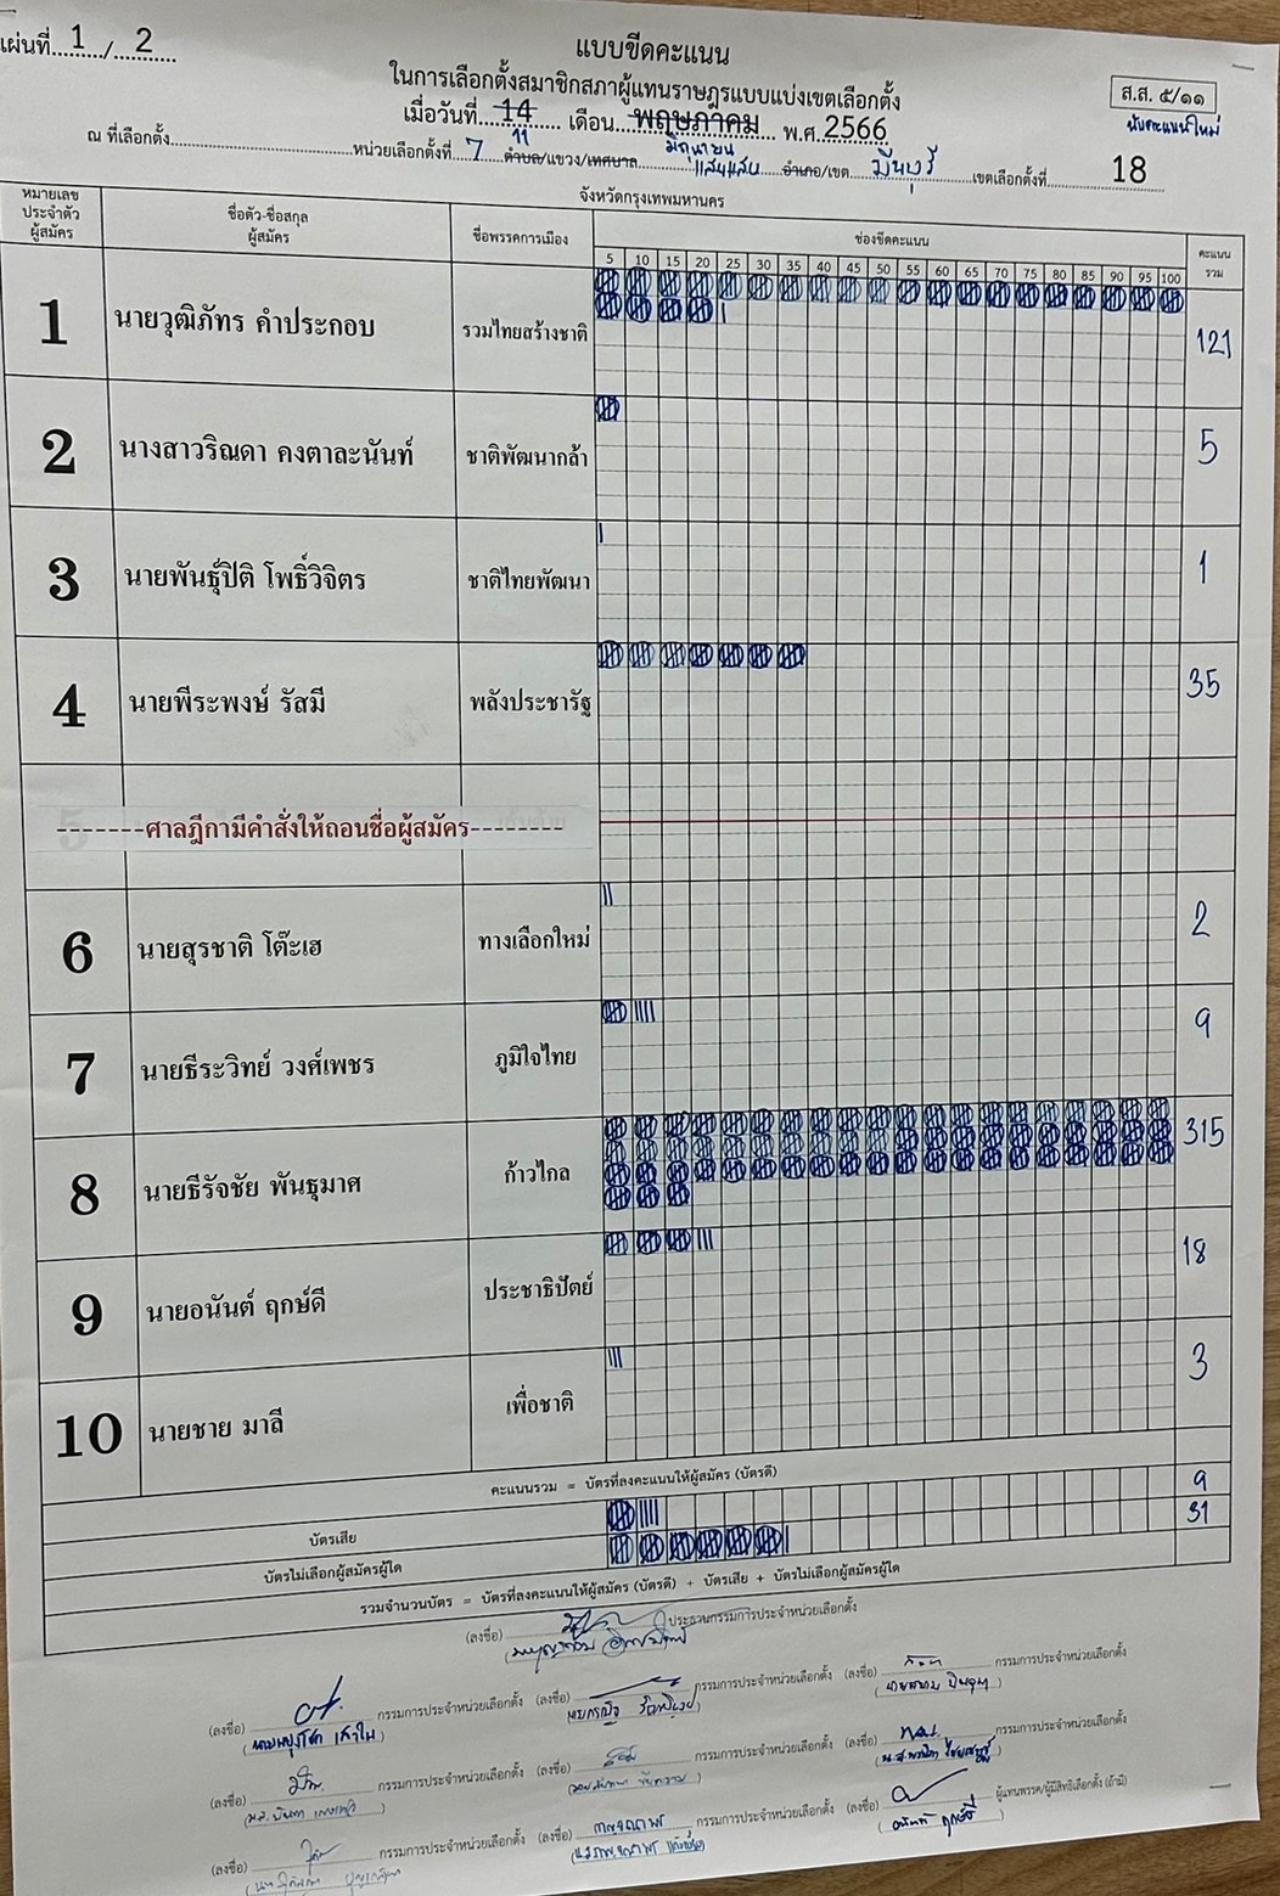 แผ่นที่ 1 / 2
แบบขีดคะแนน
ในการเลือกตั้งสมาชิกสภาผู้แทนราษฎรแบบแบ่งเขตเลือกตั้ง
ส.ส. ๕/๑๑
นับคะแนนใหม่
เมื่อวันที่ 14 11 เดือน พฤษภาคม มิถุนายน พ.ศ. 2566
ณ ที่เลือกตั้ง หน่วยเลือกตั้งที่ 7 ตำบล/แขวง/เทศบาล แสนแสบ อำเภอ/เขต มีนบุรี เขตเลือกตั้งที่ 18
จังหวัดกรุงเทพมหานคร
หมายเลขประจำตัวผู้สมัคร ชื่อตัว-ชื่อสกุล ผู้สมัคร ชื่อพรรคการเมือง ช่องขีดคะแนน คะแนนรวม
5 10 15 20 25 30 35 40 45 50 55 60 65 70 75 80 85 90 95 100
1 นายวุฒิภัทร คำประกอบ รวมไทยสร้างชาติ 121
2 นางสาวริณดา คงตาละนันท์ ชาติพัฒนากล้า 5
3 นายพันธุ์ปิติ โพธิ์วิจิตร ชาติไทยพัฒนา 1
4 นายพีระพงษ์ รัสมี พลังประชารัฐ 35
-------ศาลฎีกามีคำสั่งให้ถอนชื่อผู้สมัคร--------
6 นายสุรชาติ โต๊ะเฮ ทางเลือกใหม่ 2
7 นายธีระวิทย์ วงศ์เพชร ภูมิใจไทย 9
8 นายธีรัจชัย พันธุมาศ ก้าวไกล 315
9 นายอนันต์ ฤกษ์ดี ประชาธิปัตย์ 18
10 นายชาย มาลี เพื่อชาติ 3
คะแนนรวม = บัตรที่ลงคะแนนให้ผู้สมัคร (บัตรดี)
บัตรเสีย 9
บัตรไม่เลือกผู้สมัครผู้ใด 31
รวมจำนวนบัตร = บัตรที่ลงคะแนนให้ผู้สมัคร (บัตรดี) + บัตรเสีย + บัตรไม่เลือกผู้สมัครผู้ใด
(ลงชื่อ) ประธานกรรมการประจำหน่วยเลือกตั้ง
(ลงชื่อ) กรรมการประจำหน่วยเลือกตั้ง (ลงชื่อ) กรรมการประจำหน่วยเลือกตั้ง (ลงชื่อ) กรรมการประจำหน่วยเลือกตั้ง
(ลงชื่อ) กรรมการประจำหน่วยเลือกตั้ง (ลงชื่อ) กรรมการประจำหน่วยเลือกตั้ง (ลงชื่อ) กรรมการประจำหน่วยเลือกตั้ง
(ลงชื่อ) กรรมการประจำหน่วยเลือกตั้ง (ลงชื่อ) กรรมการประจำหน่วยเลือกตั้ง (ลงชื่อ) ผู้แทนพรรค/ผู้มีสิทธิเลือกตั้ง (ถ้ามี)